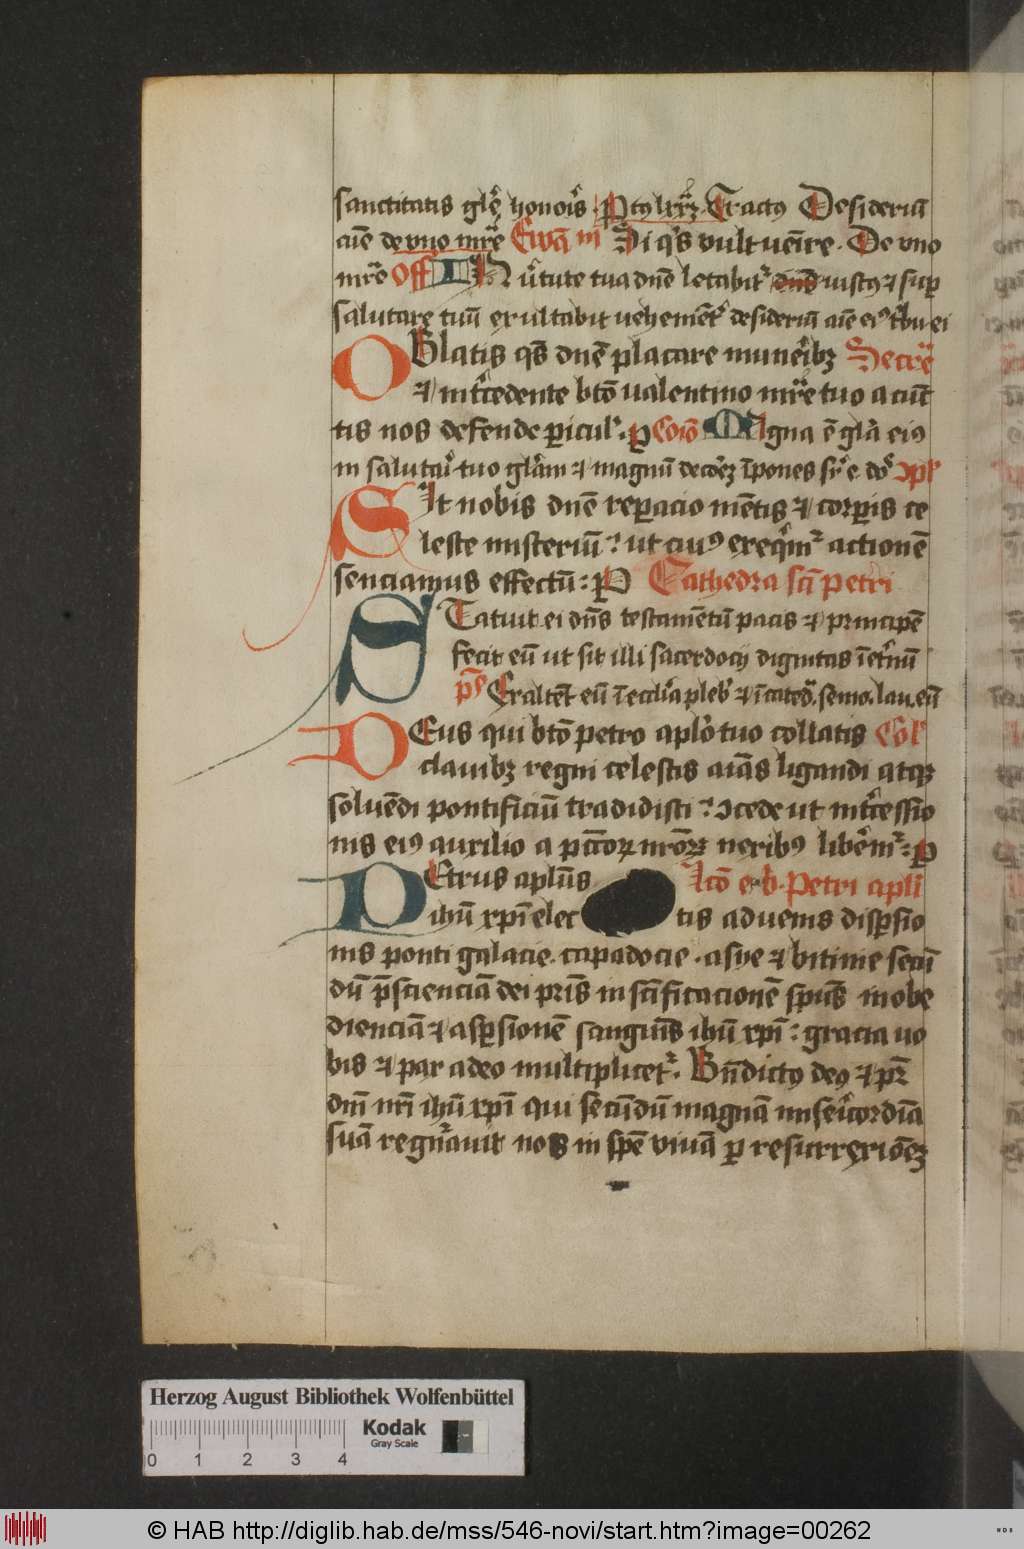 sanctitatis glē honoris Ptylxxꝫ Tractꝯ Desideriū
aīe de vno mrē Ewā m Si qͥs vult uēire De vno
mrē Off IN v̓tute tua dnē letabitᷣ dnē iustꝯ ⁊ suꝑ
salutare tuū exultabit vehemēt desideriū aīe eiꝰ tͥbu ei
OBlatis qs̄ dnē placare munēibꝫ Secrē
⁊ int̓cedente btō ualentino mrē tuo a cūc
tis nos defende ꝑicul̓ ꝑ Cōio Magna ē glā eiꝰ
in salutaꝵ tuo glām ⁊ magnū decōꝫ īpones sꝵ e dō ꝯpl̓
SIt nobis dnē reꝑacio mētis ⁊ corꝑis ce
leste misteriū ut cuiꝰ exeqͥmᷣ actionē
senciamus effectū ꝑ Cathedra scī petri
STatuit ei dn̄s testamētū pacis ⁊ principē
fecit eū ut sit illi sacerdocij dignitas īet̓nū
p̄s Exaltēt eū ī ecclīa pleb̓ ⁊ ī cated̓ senio lau eū
DEus qui btō petro aplō tuo collatis Col̓
clauibꝫ regni celestis aīas ligandi atqꝫ
soluēdi pontificiū tradidisti ꝯcede ut int̓cessio
nis eiꝰ auxilio a pctōꝝ nrōꝝ nexibꝰ libēmᷣ ꝑ
PEtrus aplūs Lcō e b Petri apli
ihū xpī elec tis aduenis disꝑsio
nis ponti galacie capadocie asye ⁊ bitinie secū
dū p̄scienciā dei pris̄ in scīficacionē spūs in obe
dienciā ⁊ asꝑsionē sanguīs ihū xpī gracia uo
bis ⁊ pax adeo multiplicetᷣ Bn̄dictꝯ deꝯ ⁊ pr̄
dnī nrī ihū xpī qui secūdū magnā misēicordiā
suā regn̄auit nos in spē viuā ꝑ resurrexiōeꝫ
Herzog August Bibliothek Wolfenbüttel
Kodak
Gray Scale
0 1 2 3 4
© HAB http://diglib.hab.de/mss/546-novi/start.htm?image=00262